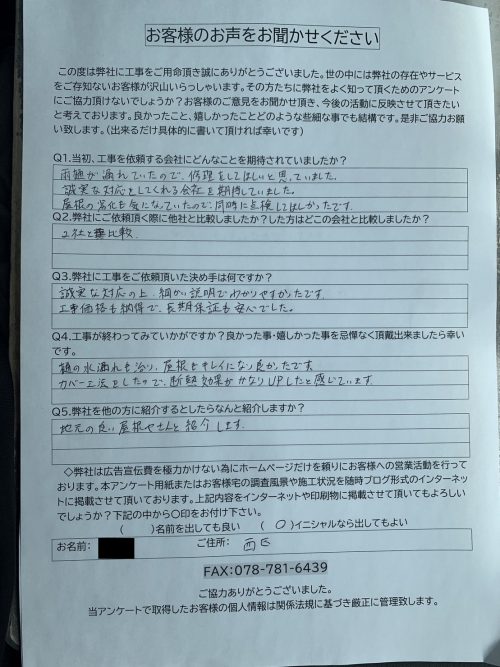 お客様のお声をお聞かせください
この度は弊社に工事をご用命頂き誠にありがとうございました。世の中には弊社の存在やサービス
をご存知ないお客様が沢山いらっしゃいます。その方たちに弊社をよく知って頂くためのアンケート
にご協力頂けないでしょうか?お客様のご意見をお聞かせ頂き、今後の活動に反映させて頂きたい
と考えております。良かったこと、嬉しかったことどのような些細な事でも結構です。是非ご協力お願
い致します。(出来るだけ具体的に書いて頂ければ幸いです)
Q1.当初、工事を依頼する会社にどんなことを期待されていましたか?
雨樋が漏れていたので、修理をしてほしいと思っていました。
誠実な対応をしてくれる会社を期待していました。
屋根の劣化も気になっていたので、同時に点検してほしかったです。
Q2.弊社にご依頼頂く際に他社と比較しましたか?した方はどこの会社と比較しましたか?
2社と比較
Q3.弊社に工事をご依頼頂いた決め手は何ですか?
誠実な対応の上、細かい説明でわかりやすかったです。
工事価格も納得で、長期保証も安心でした。
Q4.工事が終わってみていかがですか?良かった事・嬉しかった事を忌憚なく頂戴出来ましたら幸い
です。
樋の水漏れも治り、屋根もキレイになり良かったです。
カバー工法をしたので、断熱効果がかなりUPしたと感じています。
Q5.弊社を他の方に紹介するとしたらなんと紹介しますか?
地元の良い屋根やさんと紹介します。
◇弊社は広告宣伝費を極力かけない為にホームページだけを頼りにお客様への営業活動を行って
おります。本アンケート用紙またはお客様宅の調査風景や施工状況を随時ブログ形式のインターネッ
トに掲載させて頂いております。上記内容をインターネットや印刷物に掲載させて頂いてもよろしい
でしょうか?下記の中から〇印をお付け下さい。
(　　)名前を出しても良い　(　〇　)イニシャルなら出してもよい
お名前:　ご住所:　西区
FAX:078-781-6439
ご協力ありがとうございました。
当アンケートで取得したお客様の個人情報は関係法規に基づき厳正に管理致します。